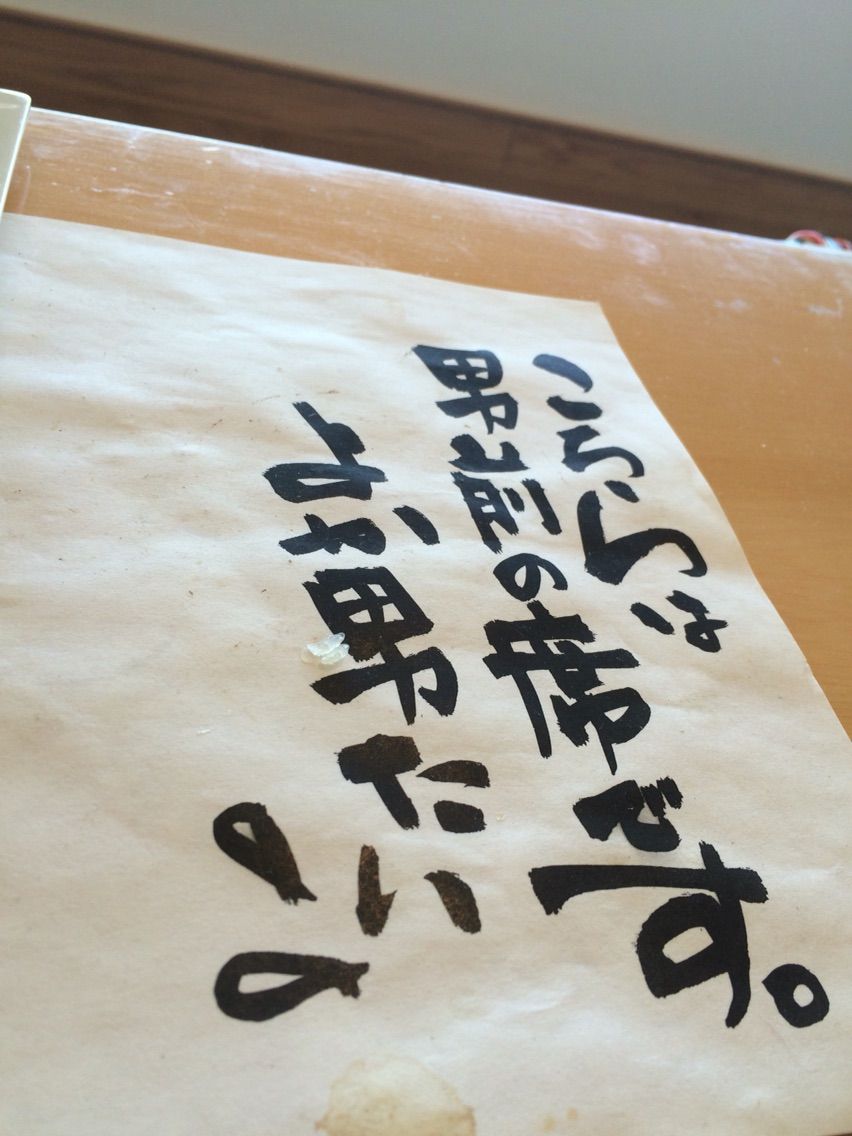 こちらは
男前の席です。
よか男たい